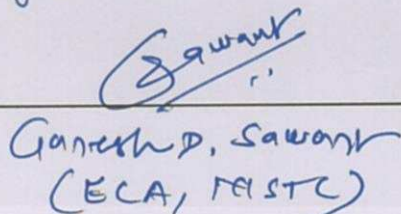 Sawant
Ganesh D. Sawant
(ECA, MSTC)